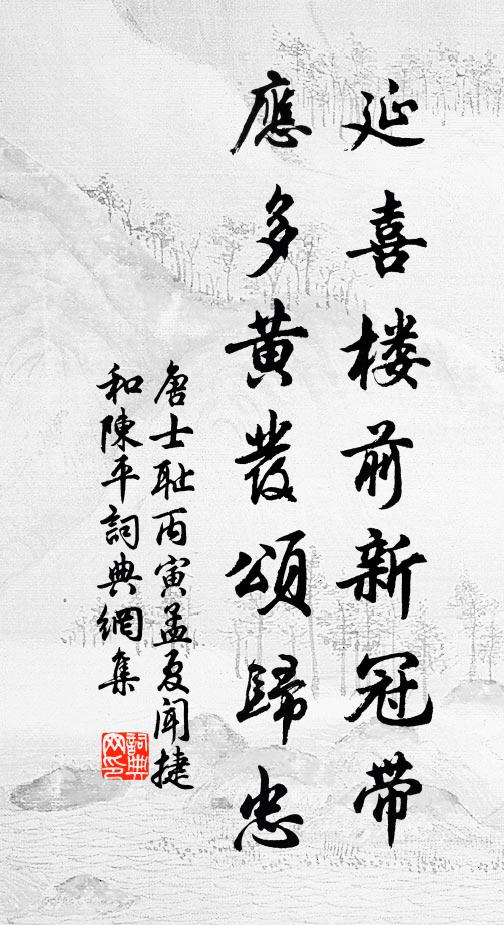 延喜楼前新冠带
應多黄發頌歸忠
唐士耻丙寅孟夏聞捷
和陳平詞典網集
詞典网印